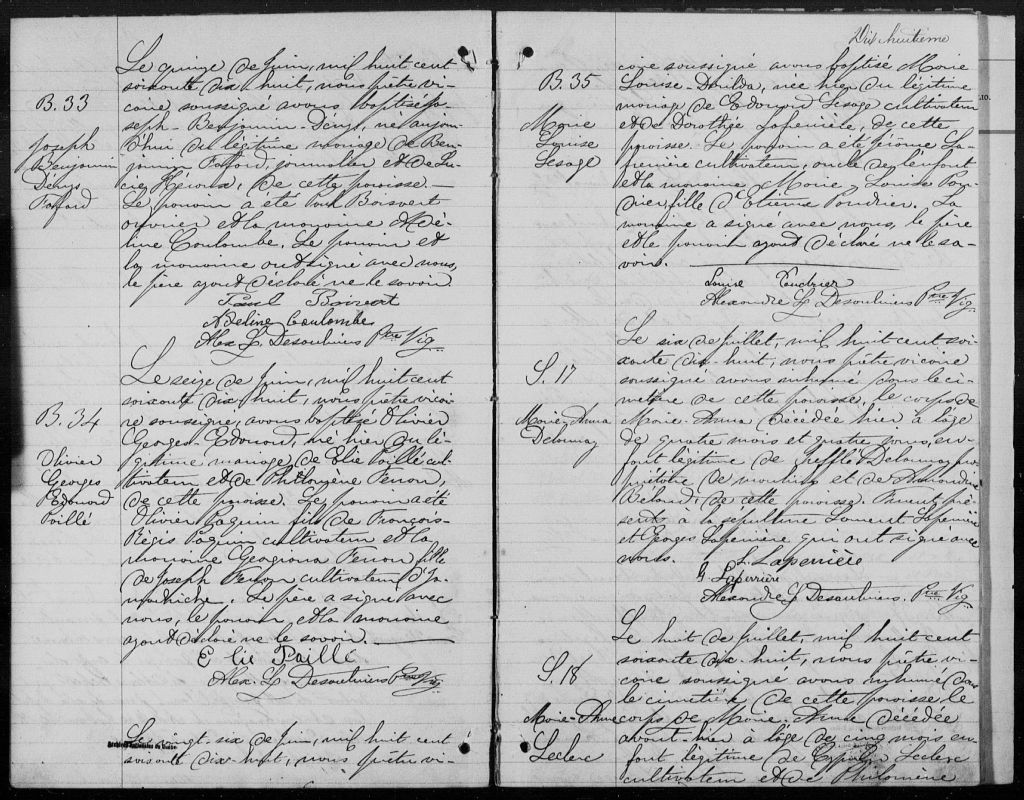 B. 33
Joseph
Benjamin
Dénys
Paffard
Le quinze de Juin, mil huit cent
soixante dix huit, nous prêtre vi-
caire soussigné avons baptisé Jo-
seph-Benjamin-Dénys, né aujour-
d'hui du légitime mariage de Ben-
jamin Paffard, journalier et de Lu-
cie Héroux, de cette paroisse.—
Le parrain a été Paul Boisvert
ouvrier et la marraine Adé-
line Coulombe. Le parrain et
la marraine ont signé avec nous,
le père ayant déclaré ne le savoir
Paul Boisvert
Adeline Coulombe
Alex L Desaulniers Ptre Vic
B. 34
Olivier
Georges
Edouard
Paillé
Le seize de Juin, mil huit cent
soixante dix huit, nous prêtre vicai-
re soussigné, avons baptisé Olivier
Georges-Edouard, né hier du lé-
gitime mariage de Elie Paillé cul-
tivateur et de Philomène Ferron,
de cette paroisse. Le parrain a été
Olivier Paquin fils de François-
Régis Paquin cultivateur et la
marraine Georgiana Ferron fille
de Joseph Ferron cultivateur d'Ya-
machiche. Le père a signé avec
nous, le parrain et la marraine
ayant déclaré ne le savoir.
Elie Paillé
Alex. L Desaulniers Ptre Vic
Le vingt-six de Juin, mil huit cent
soixante dix-huit, nous prêtre vi-
Dix huitième
B. 35
Marie
Louise
Lesage
caire soussigné avons baptisé Marie
Louise-, née hier du légitime
mariage de Edouard Lesage cultivateur
et de Dorothée Laperrière, de cette
paroisse. Le parrain a été Pierre La-
perrière cultivateur, oncle de l'enfant
et la marraine Marie Louise Pou-
drier fille d'Etienne Poudrier. La
marraine a signé avec nous, le père
et le parrain ayant déclaré ne le sa-
voir.
Louise Poudrier
Alexandre L Desaulniers Ptre Vic.
S. 17
Marie-Anna
Delaunay
Le six de Juillet, mil huit cent soi-
xante dix-huit, nous prêtre vicaire
soussigné avons inhumé dans le ci-
metière de cette paroisse, le corps de
Marie-Anna décédée hier à l'âge
de quatre mois et quatre jours, en-
fant légitime de Delaunay pro-
priétaire de moulins et de
Beland, de cette paroisse. Furent pré-
sents à la sépulture Laurent Laperrière
et Georges Laperrière qui ont signé avec
nous.
L. Laperrière
G Laperrière
Alexandre L Desaulniers. Ptre Vic
S. 18
Marie-Anna
Leclerc
Le huit de Juillet, mil huit cent
soixante dix-huit, nous prêtre vi-
caire soussigné avons inhumé dans
le cimetière de cette paroisse le
corps de Marie-Anna décédée
avant-hier à l'âge de cinq mois en-
fant légitime de Leclerc
cultivateur et de Philomène